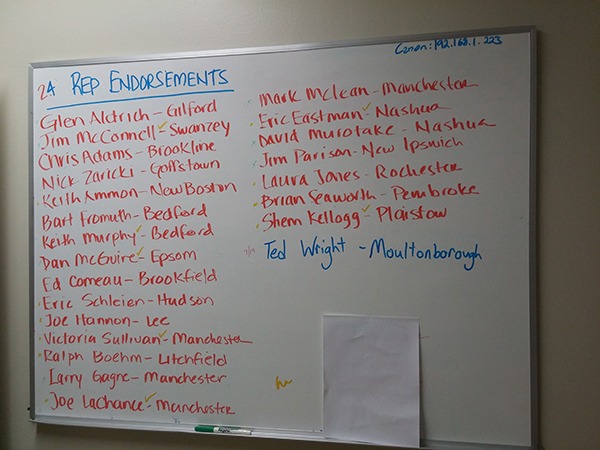 Canon: 192.168.1.223
2A REP ENDORSEMENTS
Glen Aldrich - Gilford
Jim McConnell - Swanzey
Chris Adams - Brookline
Nick Zaricki - Goffstown
Keith Ammon - New Boston
Bart Fromuth - Bedford
Keith Murphy - Bedford
Dan McGuire - Epsom
Ed Comeau - Brookfield
Eric Schleien - Hudson
Joe Hannon - Lee
Victoria Sullivan - Manchester
Ralph Boehm - Litchfield
Larry Gagne - Manchester
Joe LaChance - Manchester
Mark McLean - Manchester
Eric Eastman - Nashua
David Murotake - Nashua
Jim Parison - New Ipswich
Laura Jones - Rochester
Brian Seaworth - Pembroke
Shem Kellogg - Plaistow
Ted Wright - Moultonborough